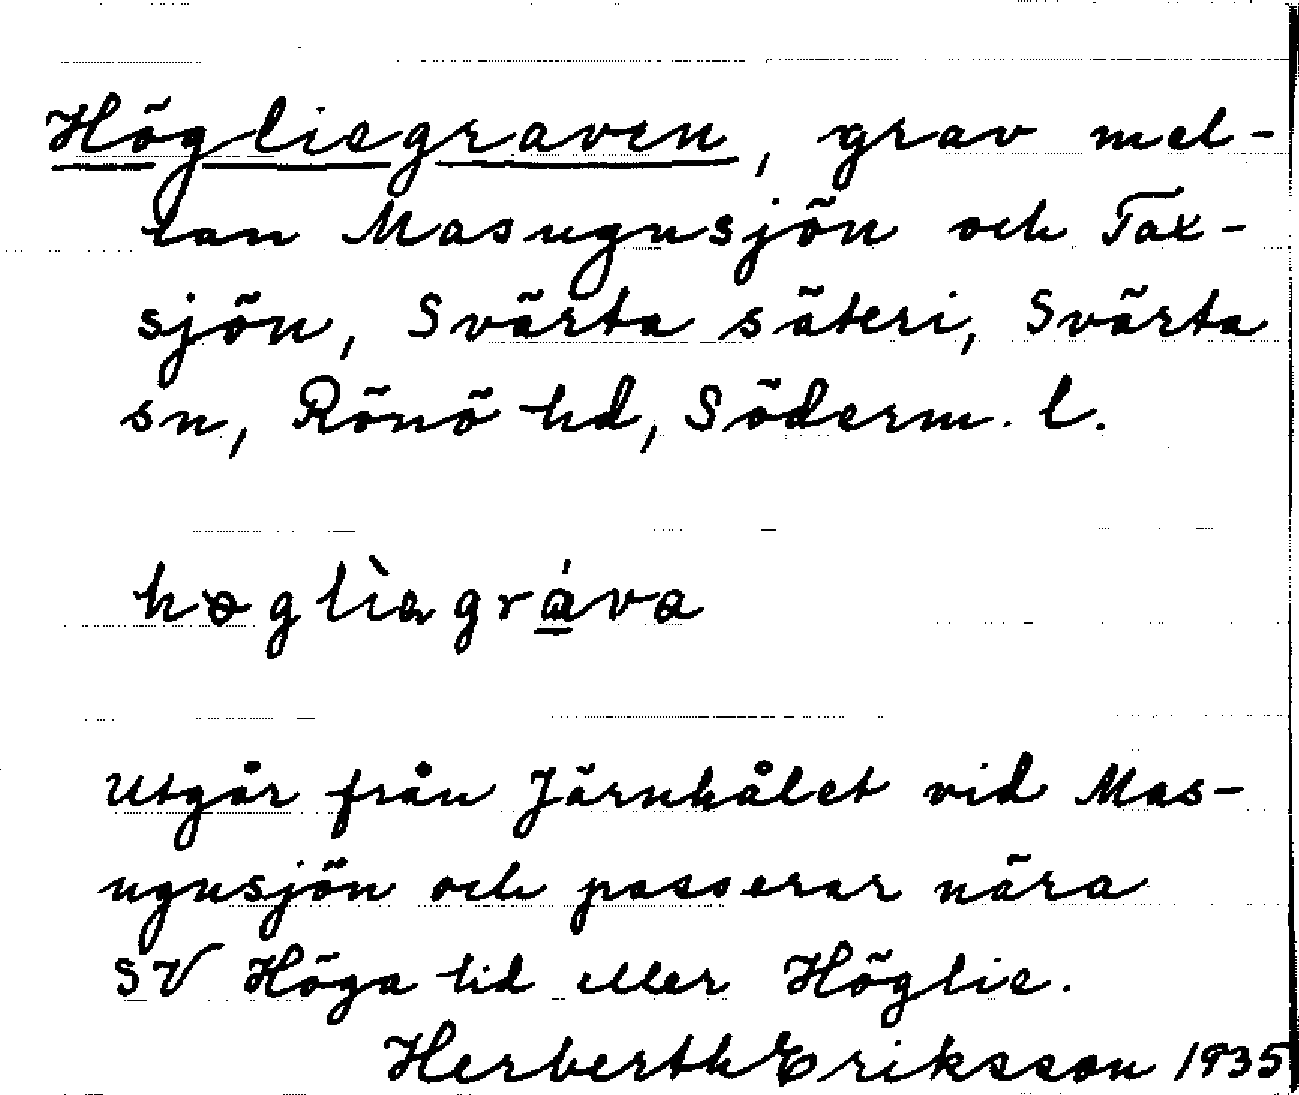 Högliegraven, grav mel-
lan Masugnsjön och Tax-
sjön, Svärta säteri, Svärta
sn, Rönö hd, Söderm. l.
Utgår från Järnhålet vid Mas-
ugnsjön och passerar nära
SV Höga lid eller Höglie.
Herberth Eriksson 1935